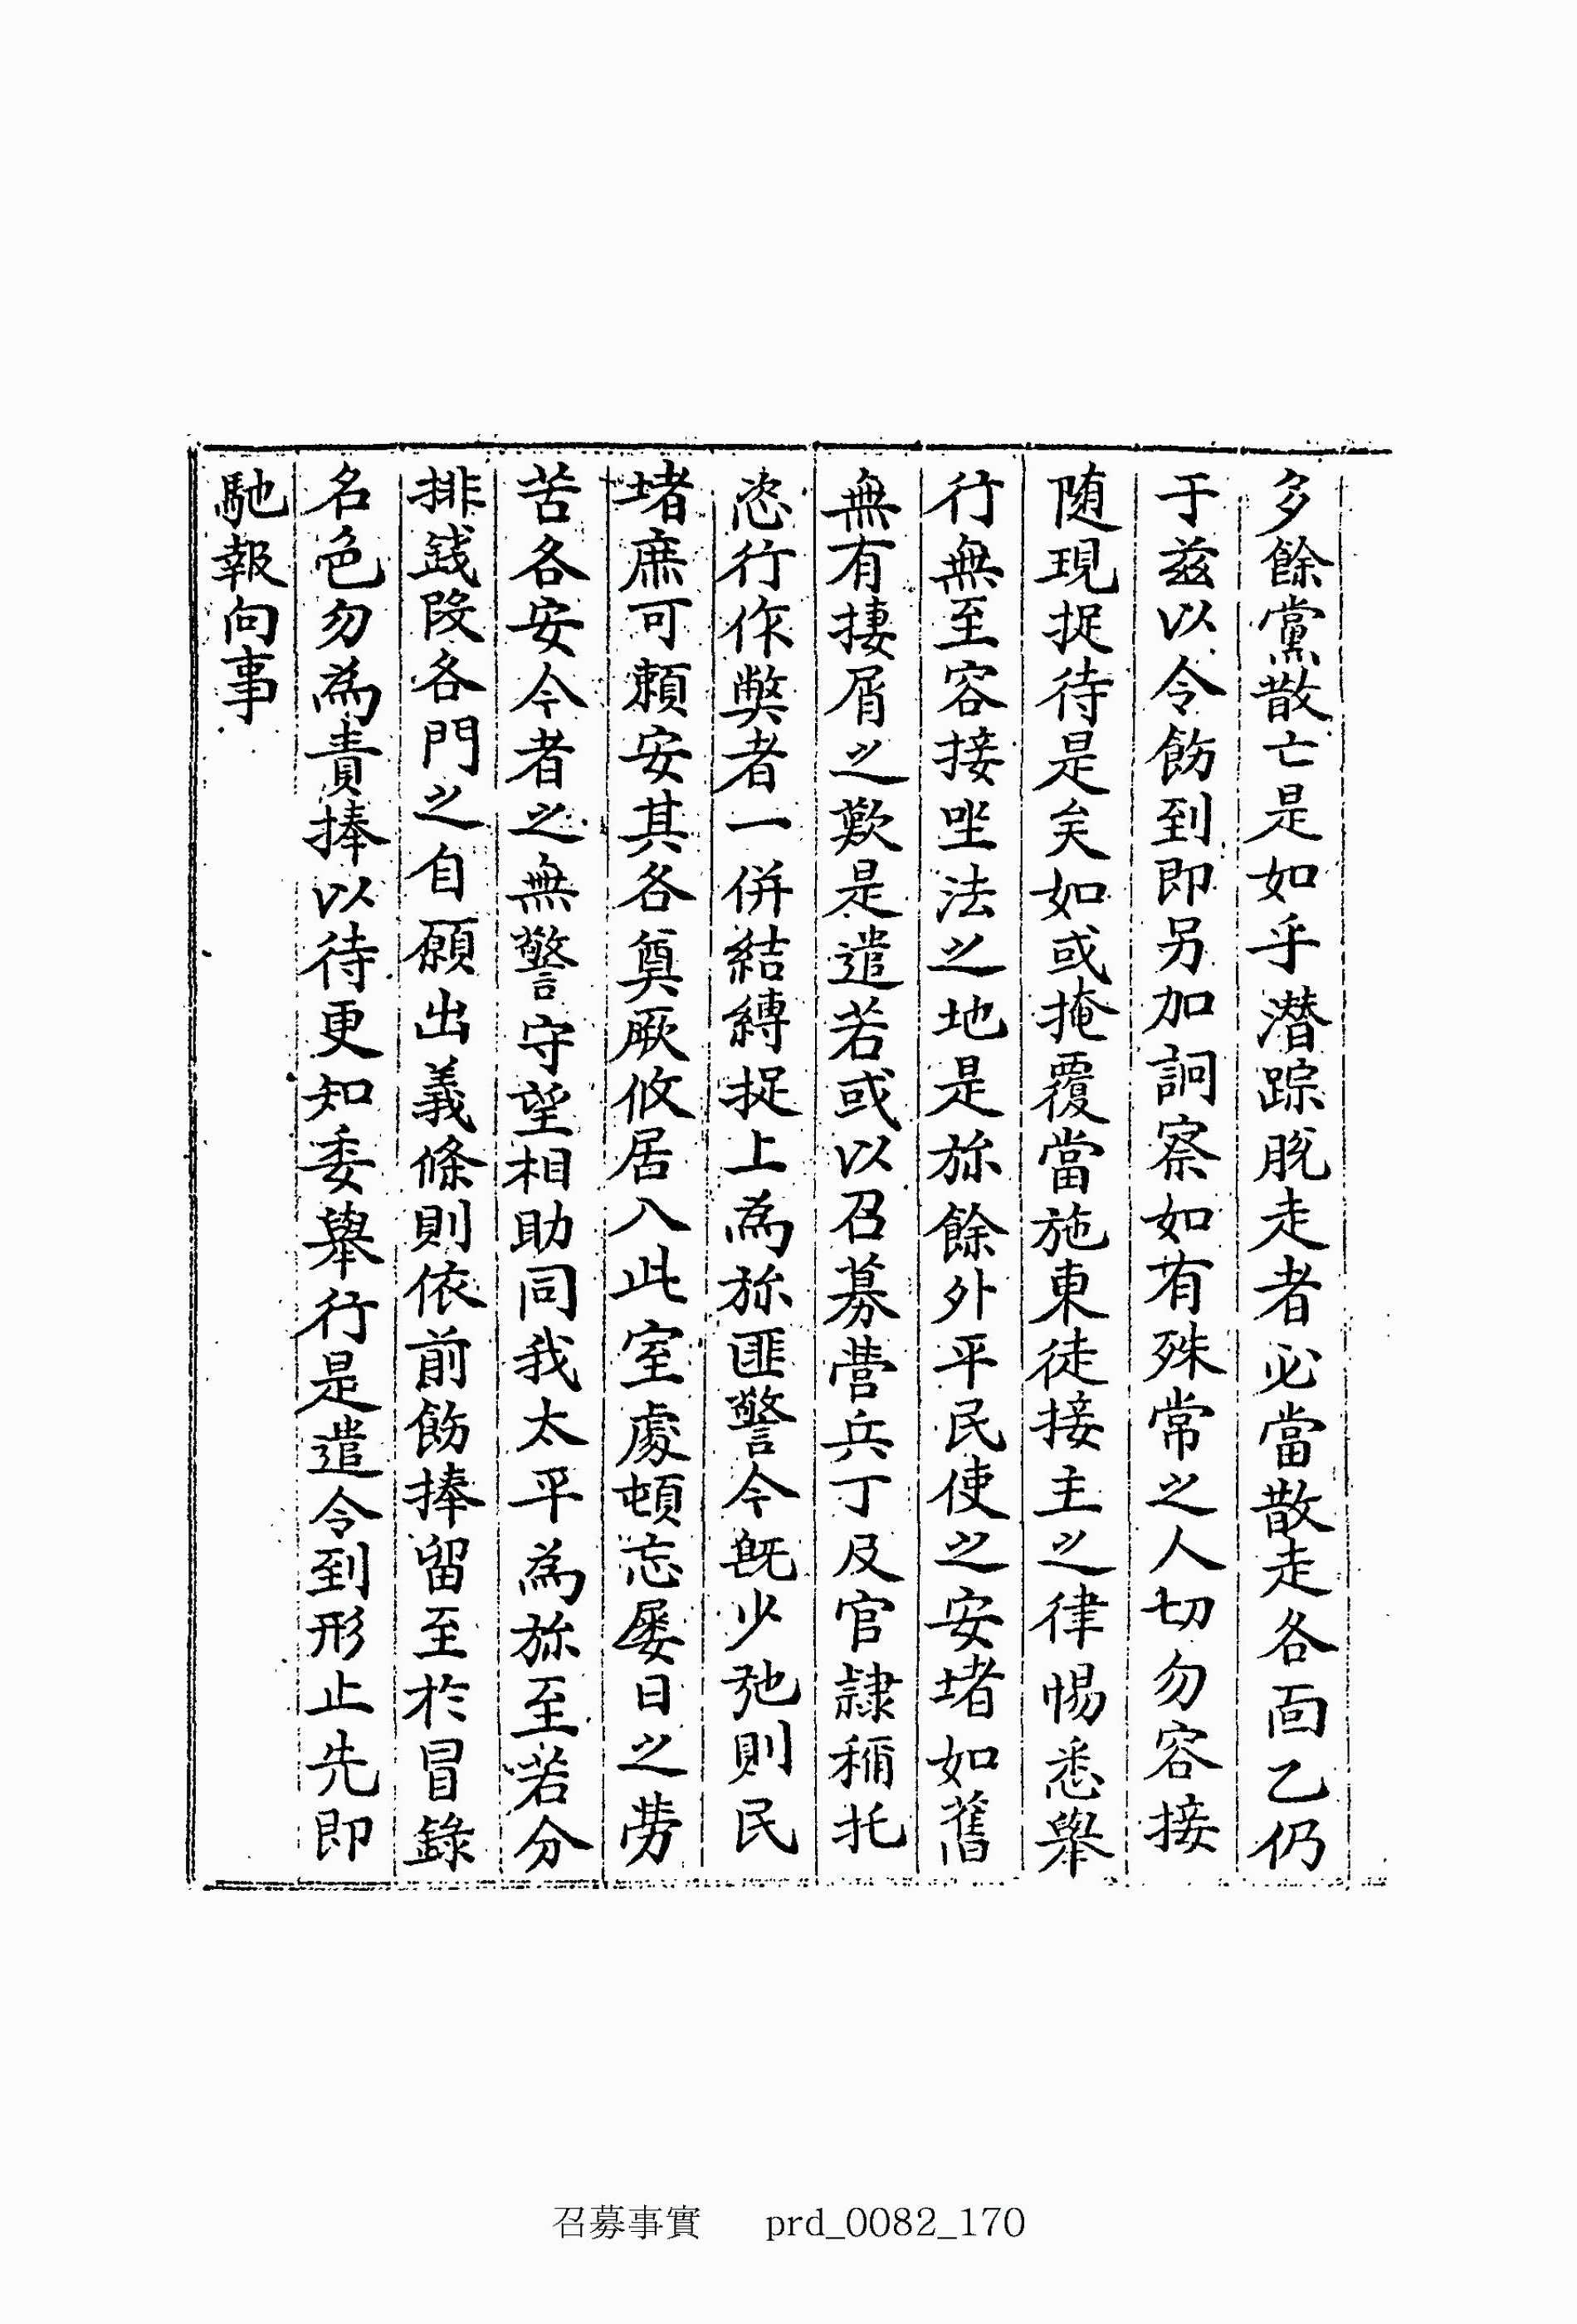 多餘黨散亡是如乎潛踪脫走者必當散走各面乙仍
于玆以令飭到即另加詗察如有殊常之人切勿容接
随現捉待是矣如或掩覆當施東徒接主之律惕悉擧
行無至容接坐法之地是旀餘外平民使之安堵如舊
無有捿屑之歎是遣若或以召募營兵丁及官隷稱托
恣行作獘者一併結縛捉上為旀匪警今旣少弛則民
堵庶可頼安其各奠厥攸居入此室處頓忘屡日之劳
苦各安今者之無警守望相助同我太平為旀至若分
排錢段各門之自願出義條則依前飭捧留至於冒錄
名色勿為責捧以待更知委擧行是遣令到形止先即
馳報向事
召募事實 prd_0082_170